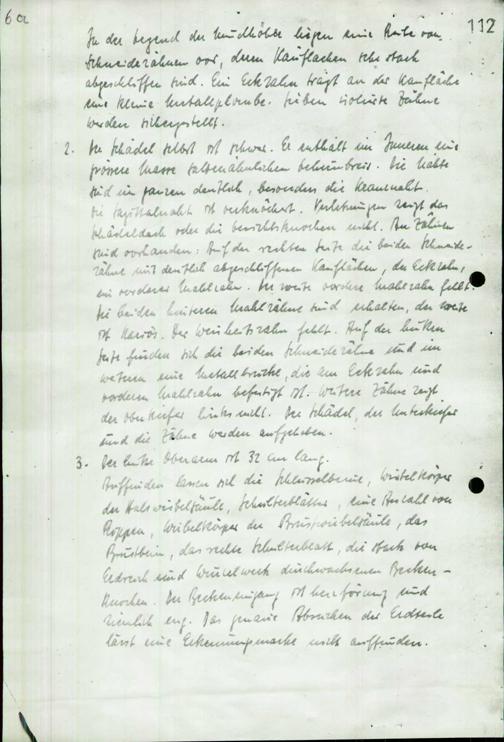 6a
112
In der Gegend der Mundhöhle liegen eine Reihe von
Schneidezähnen vor, deren Kauflächen sehr stark
abgeschliffen sind. Ein Eckzahn trägt an der Kaufläche
eine kleine Metallplombe. Sieben isolierte Zähne
werden sichergestellt.
2. Der Schädel selbst ist schwer. Er enthält im Inneren eine
grössere Masse salbenähnlichen Gehirnbreis. Die Nähte
sind im ganzen deutlich, besonders die Kranznaht.
Die Sagittalnaht ist verknöchert. Verletzungen zeigt das
Schädeldach oder die Gesichtsknochen nicht. An Zähnen
sind vorhanden: Auf der rechten Seite die beiden Schneide-
zähne mit deutlich abgeschliffenen Kauflächen, der Eckzahn,
ein vorderer Mahlzahn. Der zweite vordere Mahlzahn fehlt.
Die beiden hinteren Mahlzähne sind erhalten, der zweite
ist kariös. Der Weisheitszahn fehlt. Auf der linken
Seite finden sich die beiden Schneidezähne und im
weiteren eine Metallbrücke, die am Eckzahn und
vorderen Mahlzahn befestigt ist. Weitere Zähne zeigt
der Oberkiefer links nicht. Der Schädel, der Unterkiefer
und die Zähne werden aufgehoben.
3. Der linke Oberarm ist 32 cm lang.
Auffinden lassen sich die Schlüsselbeine, Wirbelkörper
der Halswirbelsäule, Schulterblätter, eine Anzahl von
Rippen, Wirbelkörper der Brustwirbelsäule, das
Brustbein, das rechte Schulterblatt, die stark von
Erdreich und Wurzelwerk durchwachsenen Becken-
knochen. Der Beckeneingang ist herzförmig und
ziemlich eng. Das genaue Absuchen der Erdteile
lässt eine Erkennungsmarke nicht auffinden.